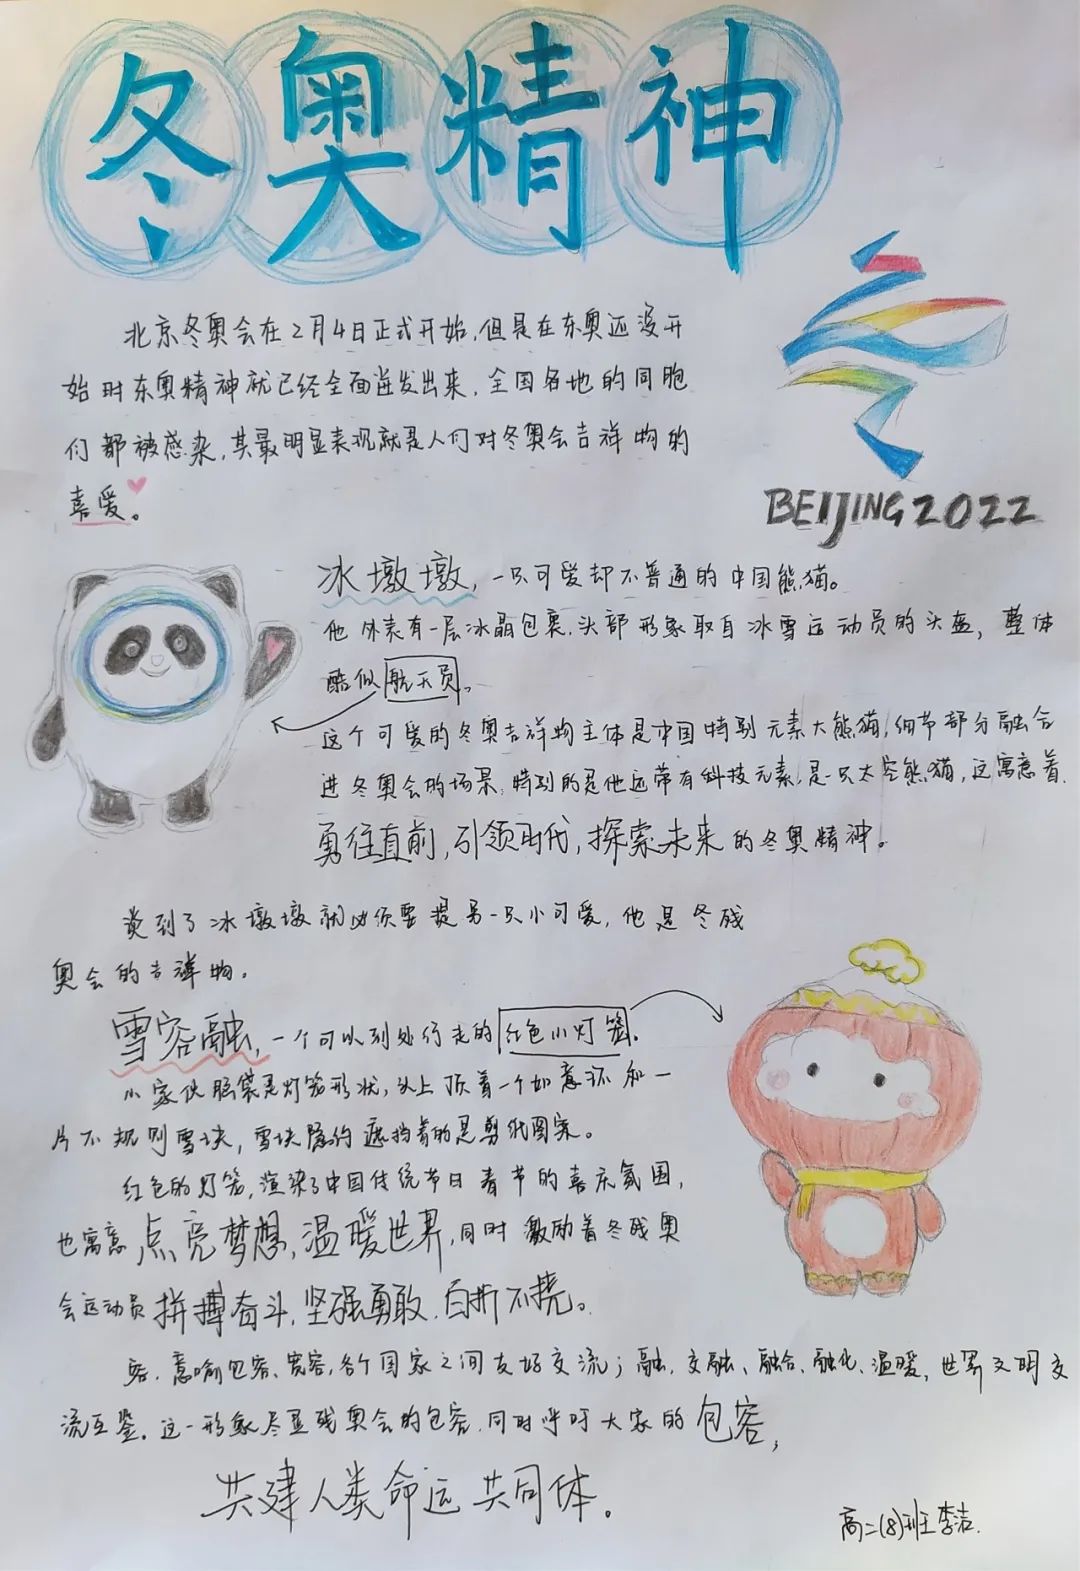 冬奥精神
北京冬奥会在2月4日正式开始,但是在东奥还没开
始时东奥精神就已经全面迸发出来,全国各地的同胞
们都被感染,其最明显表现就是人们对冬奥会吉祥物的
喜爱。
BEIJING2022
冰墩墩,一只可爱却不普通的中国熊猫。
他外表有一层冰晶包裹,头部形象取自冰雪运动员的头盔,整体
酷似航天员。
这个可爱的冬奥吉祥物主体是中国特别元素大熊猫,细节部分融合
进冬奥会的场景,特别的是他还带有科技元素,是一只太空熊猫,这寓意着
勇往直前,引领时代,探索未来的冬奥精神。
谈到了冰墩墩就必须要提另一只小可爱,他是冬残
奥会的吉祥物。
雪容融,一个可以到处行走的红色小灯笼。
小家伙脑袋是灯笼形状,头上顶着一个如意环和一
片不规则雪块,雪块隐约遮挡着的是剪纸图案。
红色的灯笼,渲染了中国传统节日春节的喜庆氛围,
也寓意点亮梦想,温暖世界,同时激励着冬残奥
会运动员拼搏奋斗,坚强勇敢,百折不挠。
容,意喻包容、宽容,各个国家之间友好交流;融,交融、融合、融化、温暖,世界文明交
流互鉴。这一形象尽显残奥会的包容,同时呼吁大家的包容,
共建人类命运共同体。
高二(8)班李洁.